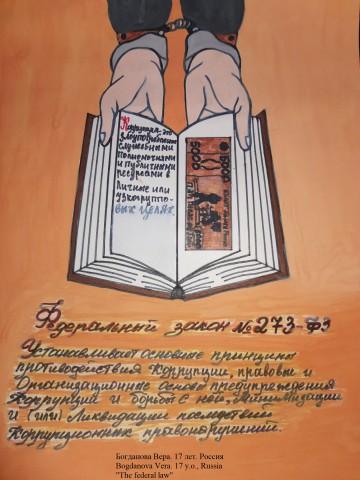 Коррупция-это
злоупотребление
служебными
полномочиями
и публичными
ресурсами в
личные или
узкогрупло-
вых целях.
5000
5000
Федеральный закон №273-ФЗ
Устанавливает основные принципы
противодействия коррупции, правовые и
Организационные основы предупреждения
Коррупции и борьбы с ней, Минимизации
и (или) Ликвидации последствий
Коррупционных правонарушений.
Богданова Вера. 17 лет. Россия
Bogdanova Vera. 17 y.o., Russia
"The federal law"